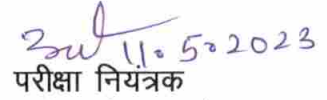 11.5.2023
परीक्षा नियंत्रक